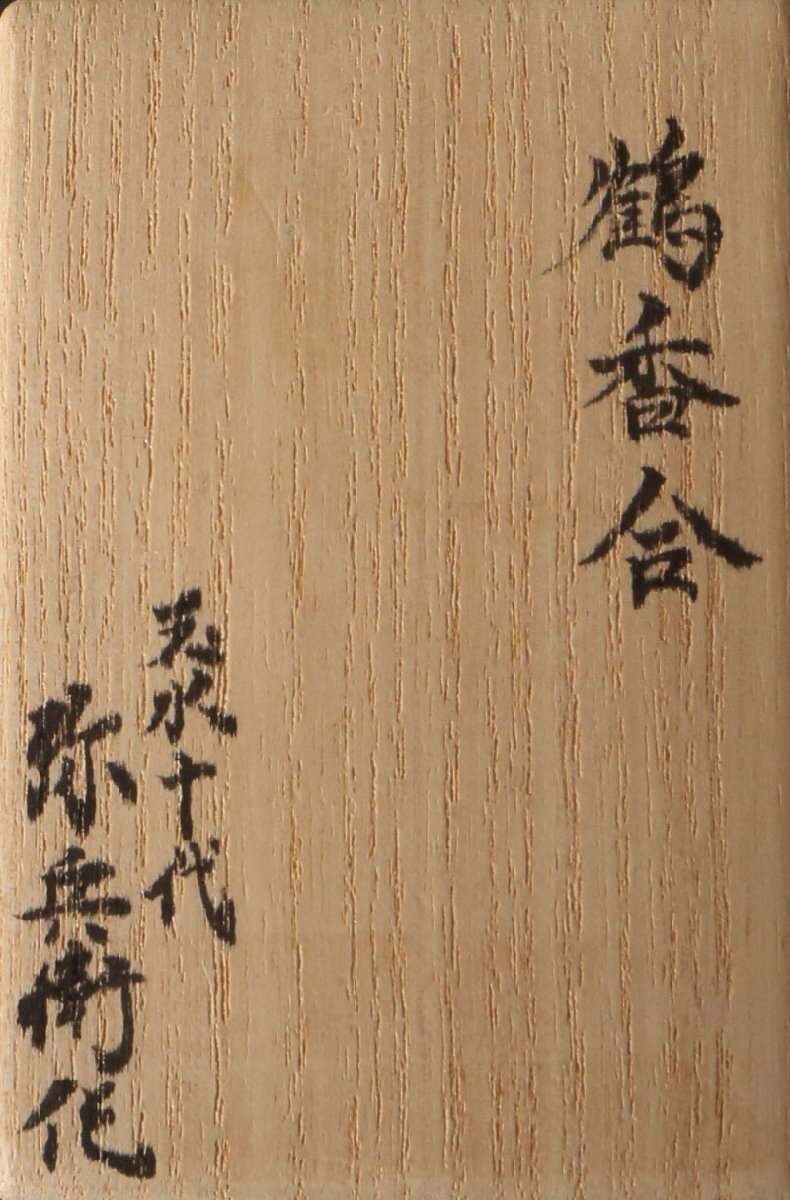 鶴香合
美水十代
弥兵衛作